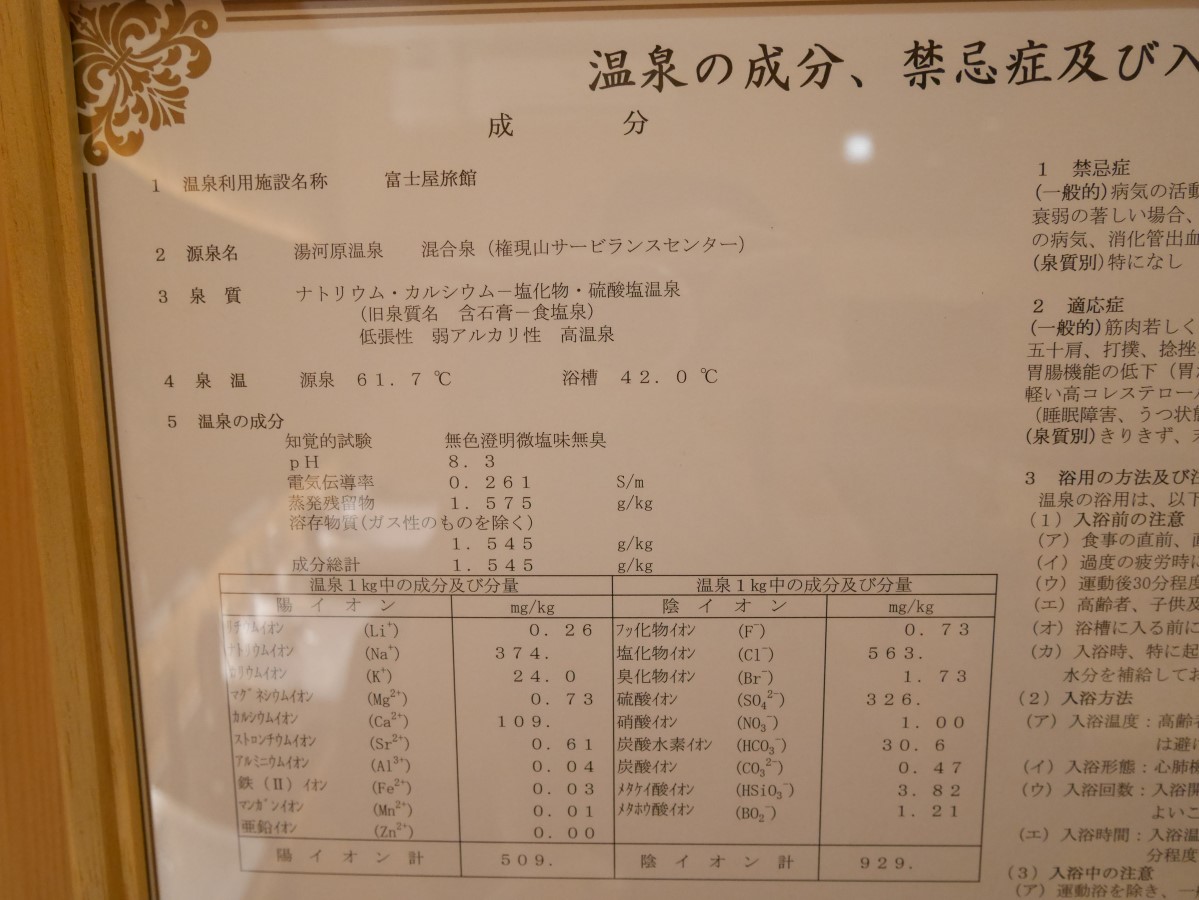 温泉の成分、禁忌症及び入
成　分
1　温泉利用施設名称　富士屋旅館
2　源泉名　湯河原温泉　混合泉（権現山サービランスセンター）
3　泉　質　ナトリウム・カルシウム－塩化物・硫酸塩温泉
（旧泉質名　含石膏－食塩泉）
低張性　弱アルカリ性　高温泉
4　泉　温　源泉　61.7℃　浴槽　42.0℃
5　温泉の成分
知覚的試験　無色澄明微塩味無臭
pH　8.3
電気伝導率　0.261　S/m
蒸発残留物　1.575　g/kg
溶存物質(ガス性のものを除く)
1.545　g/kg
成分総計　1.545　g/kg
温泉1kg中の成分及び分量　温泉1kg中の成分及び分量
陽イオン　mg/kg　陰イオン　mg/kg
リチウムイオン　(Li⁺)　0.26　フッ化物イオン　(F⁻)　0.73
ナトリウムイオン　(Na⁺)　374.　塩化物イオン　(Cl⁻)　563.
カリウムイオン　(K⁺)　24.0　臭化物イオン　(Br⁻)　1.73
マグネシウムイオン　(Mg²⁺)　0.73　硫酸イオン　(SO₄²⁻)　326.
カルシウムイオン　(Ca²⁺)　109.　硝酸イオン　(NO₃⁻)　1.00
ストロンチウムイオン　(Sr²⁺)　0.61　炭酸水素イオン　(HCO₃⁻)　30.6
アルミニウムイオン　(Al³⁺)　0.04　炭酸イオン　(CO₃²⁻)　0.47
鉄（Ⅱ）イオン　(Fe²⁺)　0.03　メタケイ酸イオン　(HSiO₃⁻)　3.82
マンガンイオン　(Mn²⁺)　0.01　メタホウ酸イオン　(BO₂⁻)　1.21
亜鉛イオン　(Zn²⁺)　0.00
陽イオン計　509.　陰イオン計　929.
1　禁忌症
(一般的)病気の活動
衰弱の著しい場合、
の病気、消化管出血
(泉質別)特になし
2　適応症
(一般的)筋肉若しく
五十肩、打撲、捻挫
胃腸機能の低下（胃
軽い高コレステロール
（睡眠障害、うつ状態
(泉質別)きりきず、
3　浴用の方法及び注
温泉の浴用は、以下
（1）入浴前の注意
（ア）食事の直前、
（イ）過度の疲労時に
（ウ）運動後30分程度
（エ）高齢者、子供及
（オ）浴槽に入る前に
（カ）入浴時、特に起
水分を補給してお
（2）入浴方法
（ア）入浴温度：高齢者
は避け
（イ）入浴形態：心肺機
（ウ）入浴回数：入浴開
よいこ
（エ）入浴時間：入浴温
分程度
（3）入浴中の注意
（ア）運動浴を除き、一般